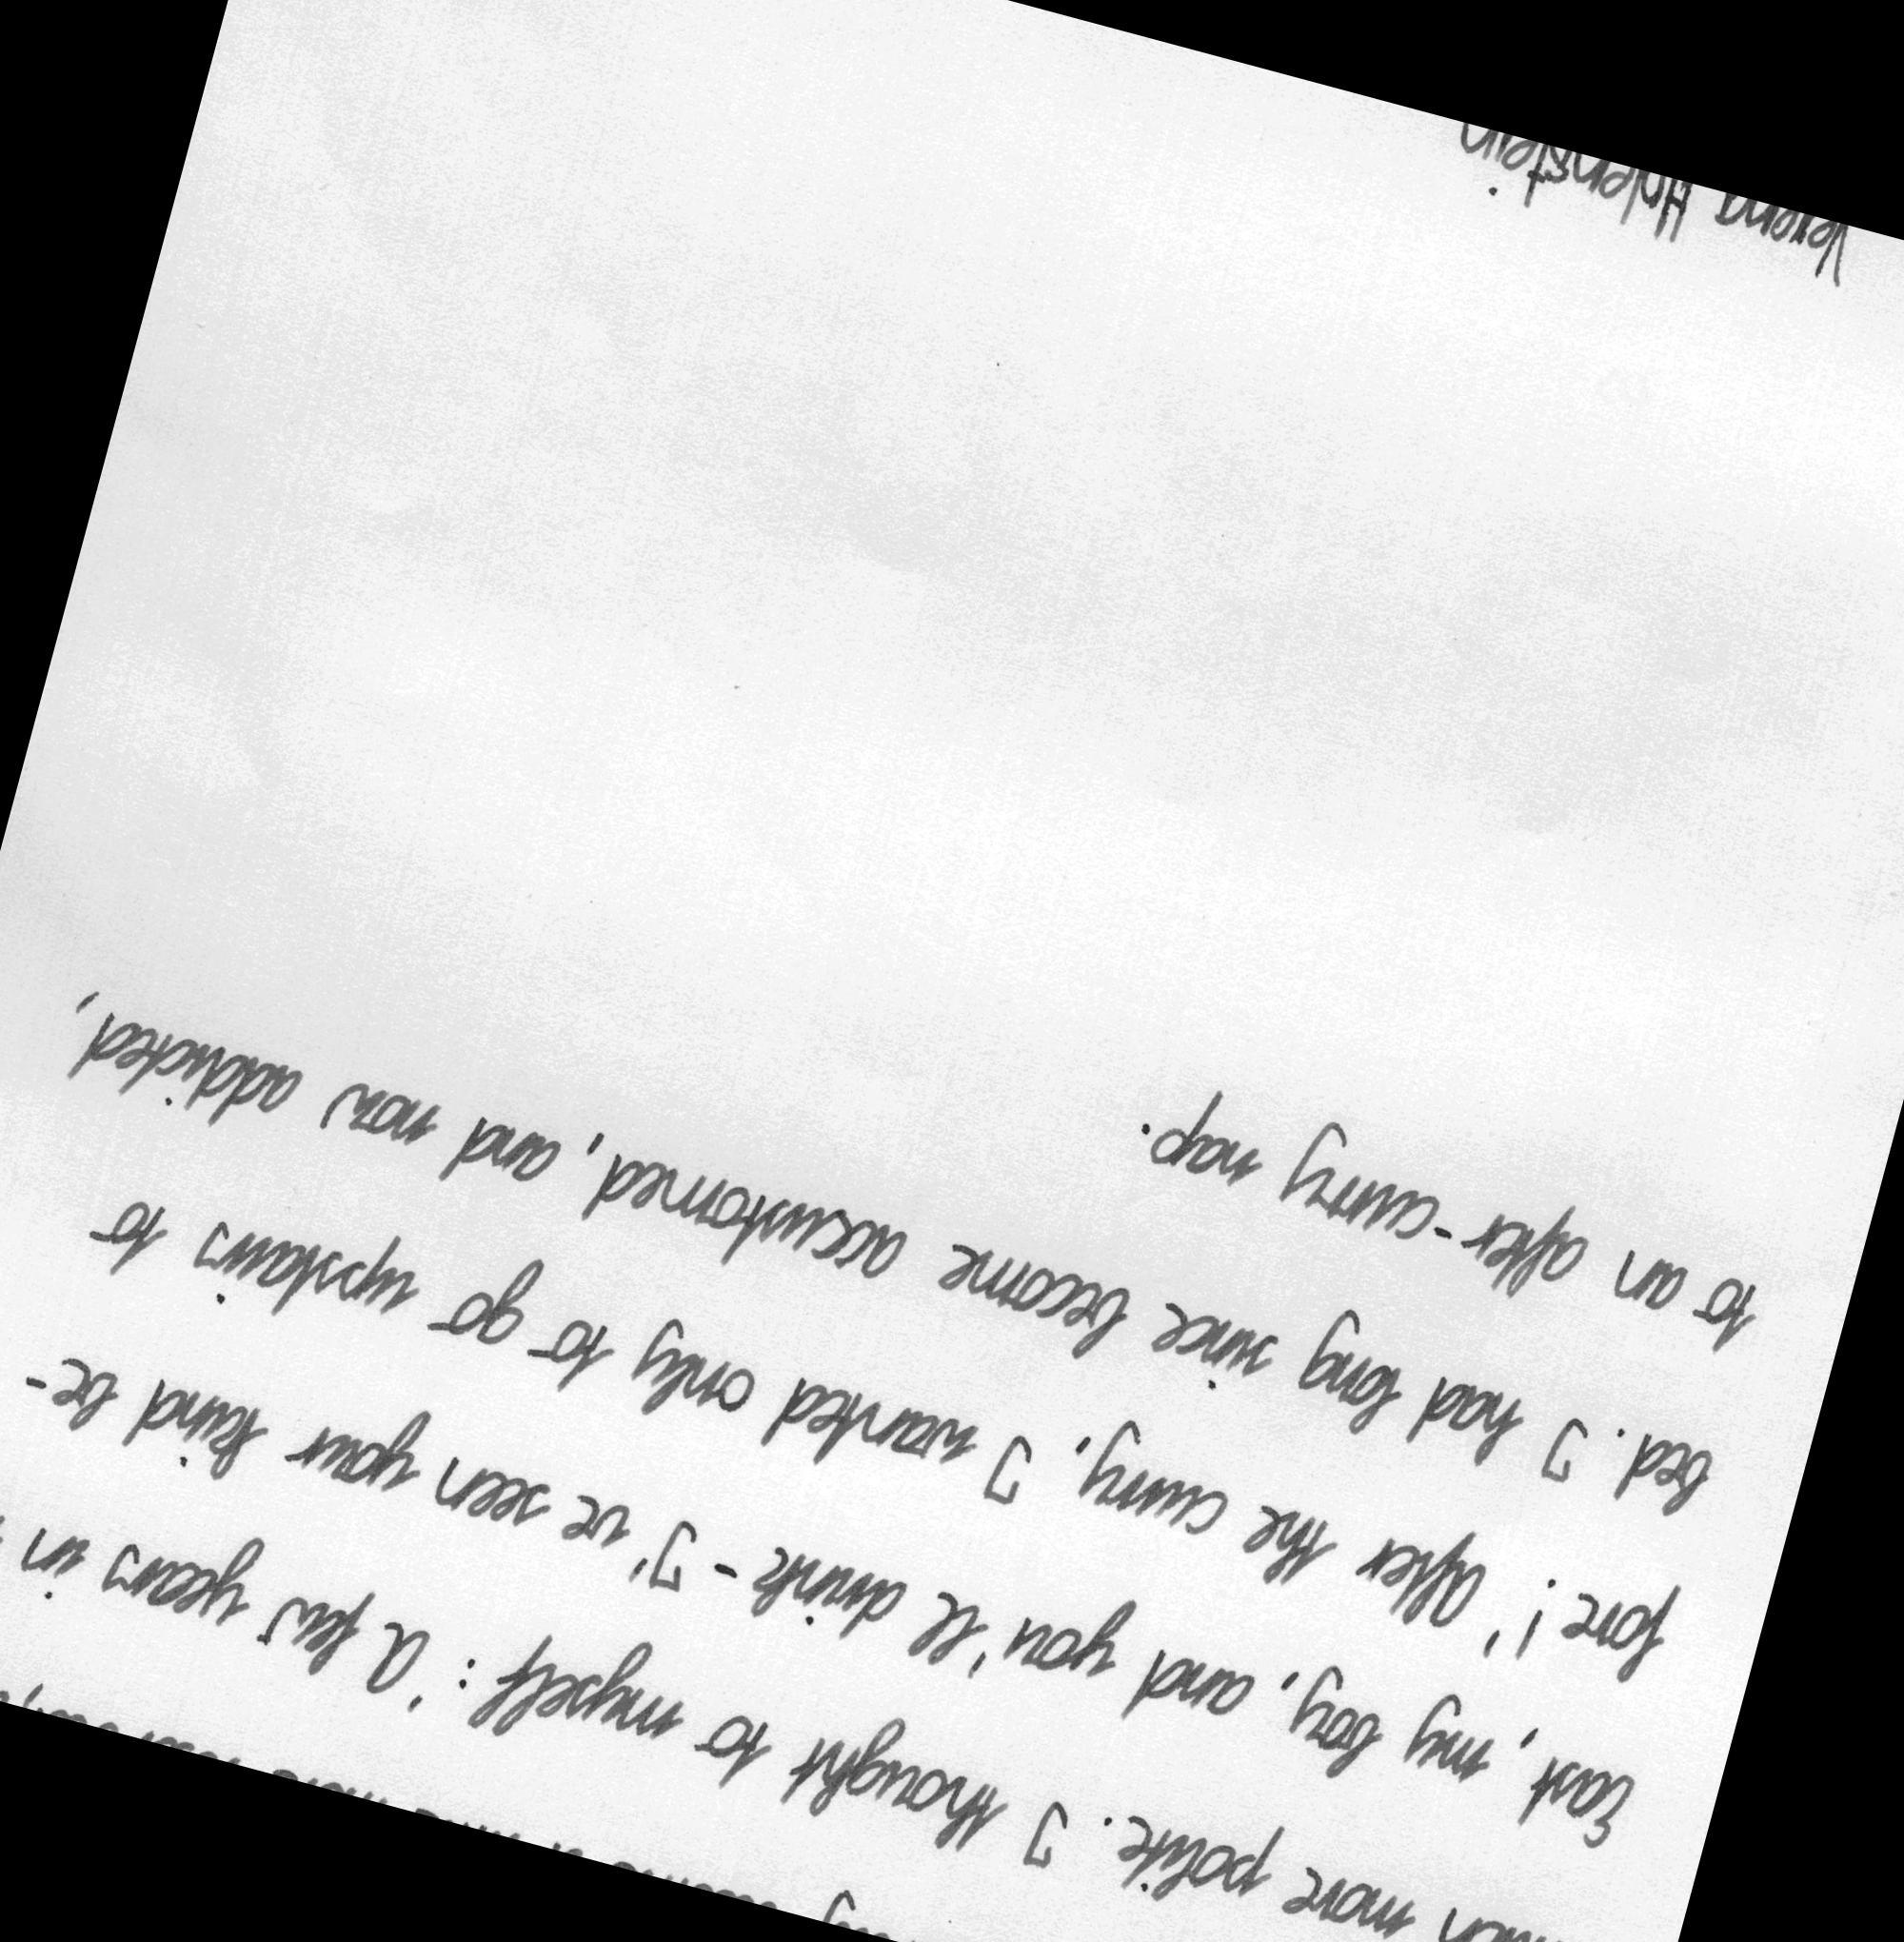 more polite. I thought to myself: 'A few years in
East, my boy, and you'll drink - I've seen your kind be-
fore!' After the curry, I wanted only to go upstairs to
bed. I had long since become accustomed, and now addicted,
to an after-curry nap.
Verena Holenstein